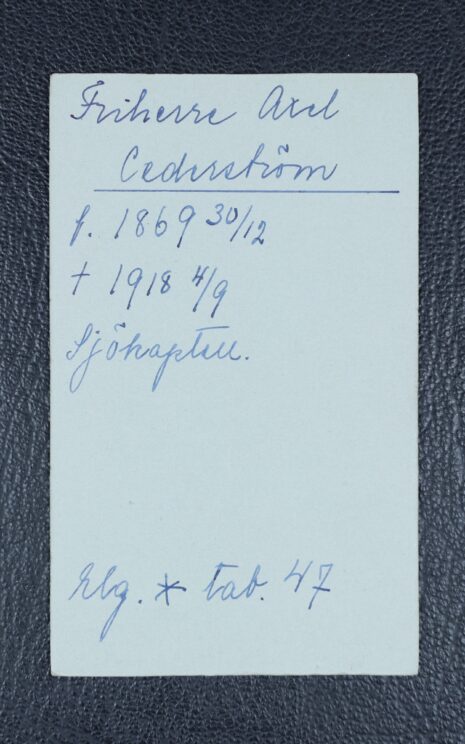 Friherre Axel
Cederström
f. 1869 30/12
† 1918 4/9
Sjökapten.
Elg. * tab. 47